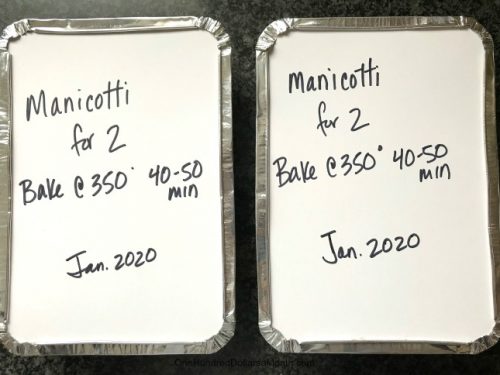 Manicotti
for 2
Bake @ 350° 40-50
min
Jan. 2020
Manicotti
for 2
Bake @ 350° 40-50
min
Jan. 2020
OneHundredDollarsaMonth.com